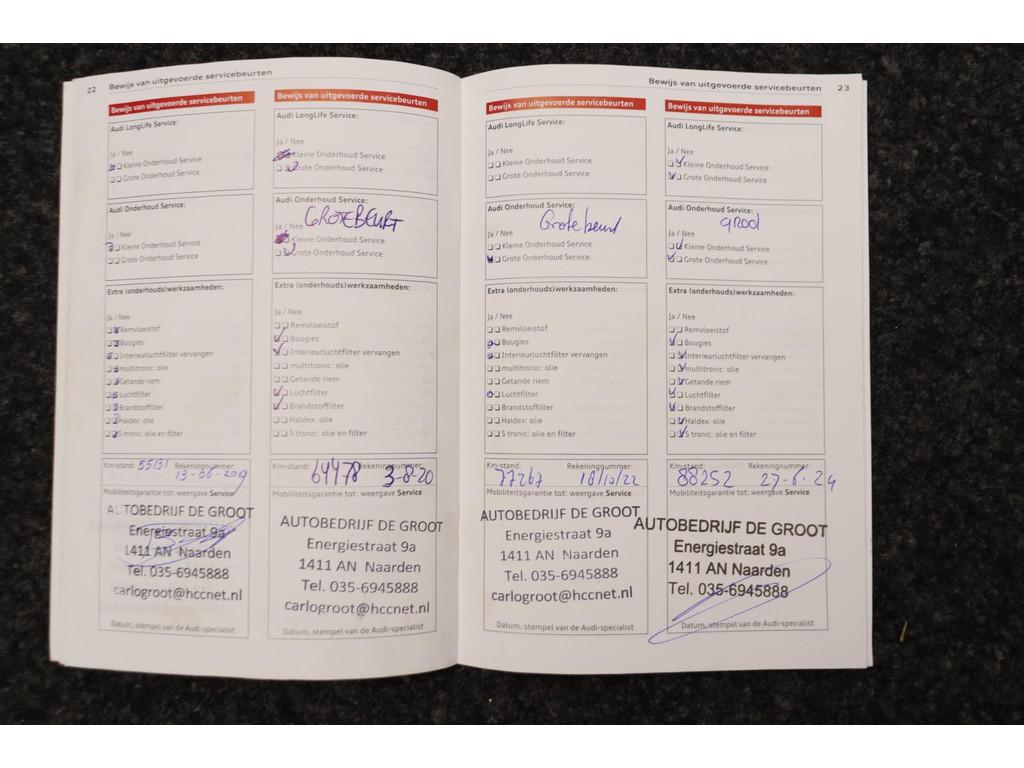 22 Bewijs van uitgevoerde servicebeurten
Bewijs van uitgevoerde servicebeurten
Audi LongLife Service:
Ja / Nee
Kleine Onderhoud Service
Grote Onderhoud Service
Audi Onderhoud Service:
Ja / Nee
Kleine Onderhoud Service
Grote Onderhoud Service
Extra (onderhouds)werkzaamheden:
Ja / Nee
Remvloeistof
Bougies
Interieurluchtfilter vervangen
multitronic: olie
Getande riem
Luchtfilter
Brandstoffilter
Haldex: olie
S tronic: olie en filter
Km-stand: 55131 Rekeningnummer:
13-06-2019
Mobiliteitsgarantie tot: weergave Service
AUTOBEDRIJF DE GROOT
Energiestraat 9a
1411 AN Naarden
Tel. 035-6945888
carlogroot@hccnet.nl
Datum, stempel van de Audi-specialist
Bewijs van uitgevoerde servicebeurten
Audi LongLife Service:
Ja / Nee
Kleine Onderhoud Service
Grote Onderhoud Service
Audi Onderhoud Service:
Ja / Nee GROTE BEURT
Kleine Onderhoud Service
Grote Onderhoud Service
Extra (onderhouds)werkzaamheden:
Ja / Nee
Remvloeistof
Bougies
Interieurluchtfilter vervangen
multitronic: olie
Getande riem
Luchtfilter
Brandstoffilter
Haldex: olie
S tronic: olie en filter
Km-stand: 64478 Rekeningnummer: 3-8-20
Mobiliteitsgarantie tot: weergave Service
AUTOBEDRIJF DE GROOT
Energiestraat 9a
1411 AN Naarden
Tel. 035-6945888
carlogroot@hccnet.nl
Datum, stempel van de Audi-specialist
Bewijs van uitgevoerde servicebeurten 23
Bewijs van uitgevoerde servicebeurten
Audi LongLife Service:
Ja / Nee
Kleine Onderhoud Service
Grote Onderhoud Service
Audi Onderhoud Service:
Ja / Nee Grote beurt
Kleine Onderhoud Service
Grote Onderhoud Service
Extra (onderhouds)werkzaamheden:
Ja / Nee
Remvloeistof
Bougies
Interieurluchtfilter vervangen
multitronic: olie
Getande riem
Luchtfilter
Brandstoffilter
Haldex: olie
S tronic: olie en filter
Km-stand: 77267 Rekeningnummer: 18/10/22
Mobiliteitsgarantie tot: weergave Service
AUTOBEDRIJF DE GROOT
Energiestraat 9a
1411 AN Naarden
Tel. 035-6945888
carlogroot@hccnet.nl
Datum, stempel van de Audi-specialist
Bewijs van uitgevoerde servicebeurten
Audi LongLife Service:
Ja / Nee
Kleine Onderhoud Service
Grote Onderhoud Service
Audi Onderhoud Service:
Ja / Nee groot
Kleine Onderhoud Service
Grote Onderhoud Service
Extra (onderhouds)werkzaamheden:
Ja / Nee
Remvloeistof
Bougies
Interieurluchtfilter vervangen
multitronic: olie
Getande riem
Luchtfilter
Brandstoffilter
Haldex: olie
S tronic: olie en filter
Km-stand: 88252 Rekeningnummer: 27-6-24
Mobiliteitsgarantie tot: weergave Service
AUTOBEDRIJF DE GROOT
Energiestraat 9a
1411 AN Naarden
Tel. 035-6945888
Datum, stempel van de Audi-specialist